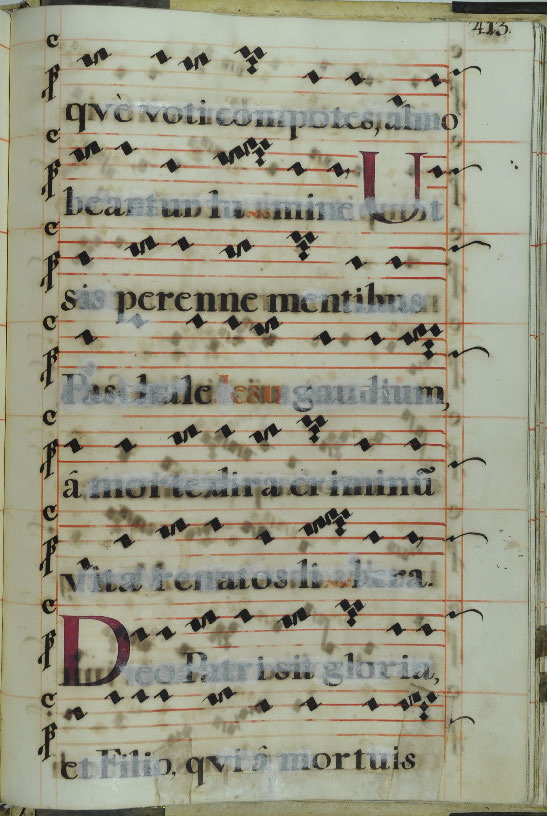 413.
qvè voti compotes, almo
beantur lumine Ut
sis perenne mentibus
Paschale Iesu gaudium,
â morte dira criminū
vitæ renatos libera.
Deo Patri sit gloria,
et Filio, qvi â mortuis